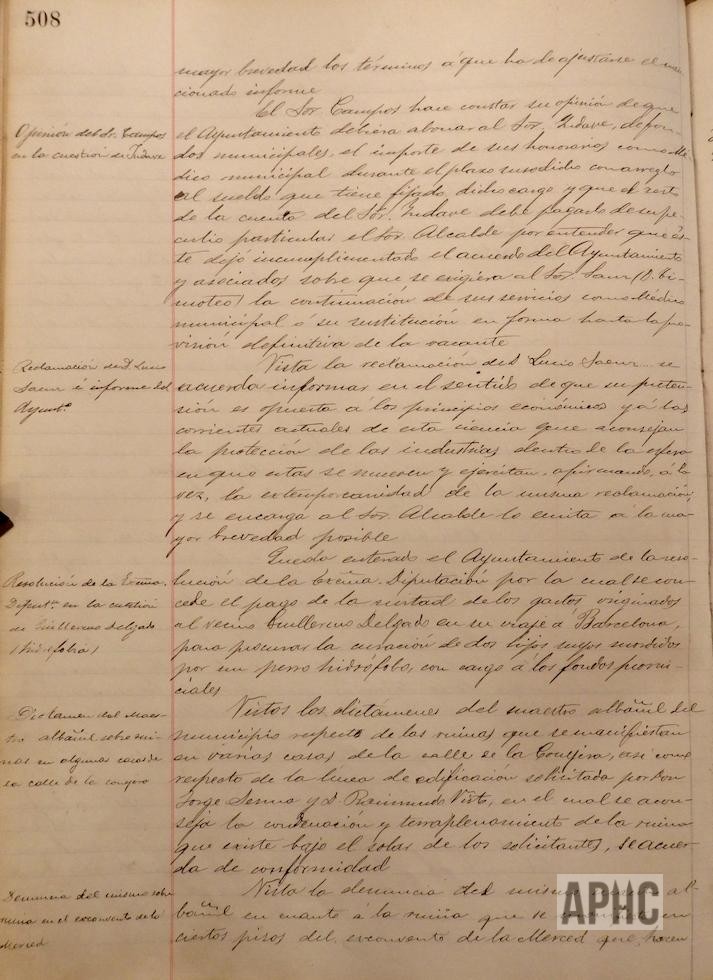 508
mayor brevedad los términos á que ha de ajustarse el men-
cionado informe
Opinión del Sr. Campos
en la cuestión de Indave
El Sor. Campos hace constar su opinión de que
el Ayuntamiento debiera abonar al Sor. Indave, de fon-
dos municipales, el importe de sus honorarios como Mé-
dico municipal durante el plazo susodicho con arreglo
al sueldo que tiene fijado dicho cargo y que el resto
de la cuenta del Sor. Indave debe pagarlo de su pe-
culio particular el Sor. Alcalde por entender que és-
te dejó incumplimentado el acuerdo del Ayuntamiento
y asociados sobre que se exigiera al Sor. Saenz (D. Ti-
moteo) la continuación de sus servicios como Médico
municipal ó su sustitución en forma hasta la pro-
visión definitiva de la vacante
Reclamación de D. Lucio
Saenz é informe del
Ayunt.º
Vista la reclamación de D. Lucio Saenz se
acuerda informar en el sentido de que su preten-
sión es opuesta á los principios económicos y á las
corrientes actuales de esta ciencia que aconsejan
la protección de las industrias dentro de la esfera
en que estas se mueven y ejercitan, afirmando, á la
vez, la extemporaneidad de la misma reclamación,
y se encarga al Sor. Alcalde lo emita á la ma-
yor brevedad posible
Resolución de la Excma.
Diput.n en la cuestión
de Guillermo Delgado
(hidrofobia)
Queda enterado el Ayuntamiento de la reso-
lución de la Excma. Diputación por la cual se con-
cede el pago de la mitad de los gastos originados
al vecino Guillermo Delgado en su viaje á Barcelona,
para procurar la curación de dos hijos suyos mordidos
por un perro hidrófobo, con cargo á los fondos provin-
ciales
Dictamen del Maes-
tro albañil sobre rui-
nas en algunas casas de
la calle de la
Vistos los dictámenes del maestro albañil del
municipio respecto de las ruinas que se manifiestan
en varias casas de la calle de la así como
respecto de la línea de edificación solicitada por Don
Jorge Senna y D. Raimundo en el cual se acon-
seja la condenación y terraplenamiento de la ruina
que existe bajo el solar de los solicitantes, se acuer-
da de conformidad
Denuncia del mismo sobre
ruina en el exconvento de la
Merced
Vista la denuncia del mismo maestro al-
bañil en cuanto á la ruina que se en
ciertos pisos del exconvento de la Merced que hacen
APHC